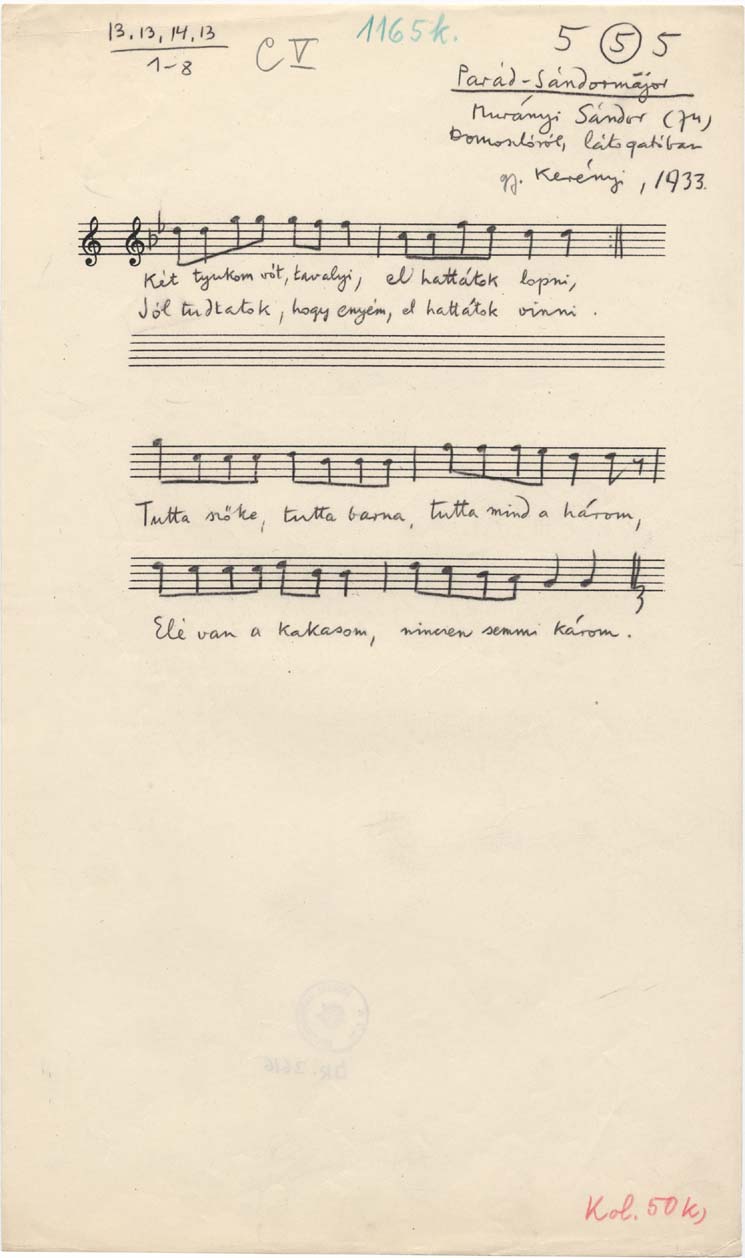 13, 13, 14, 13
1-8
C V
1165k.
5 5 5
Parád-Sándormajor
Murányi Sándor (74)
Domoszlóról, látogatóban
gy. Kerényi, 1933.
Két tyukom vót, tavalyi, el hattátok lopni,
Jól tudtatok, hogy enyém, el hattátok vinni.
Tutta szőke, tutta barna, tutta mind a három,
Elé van a kakasom, nincsen semmi károm.
Kob. 50k,